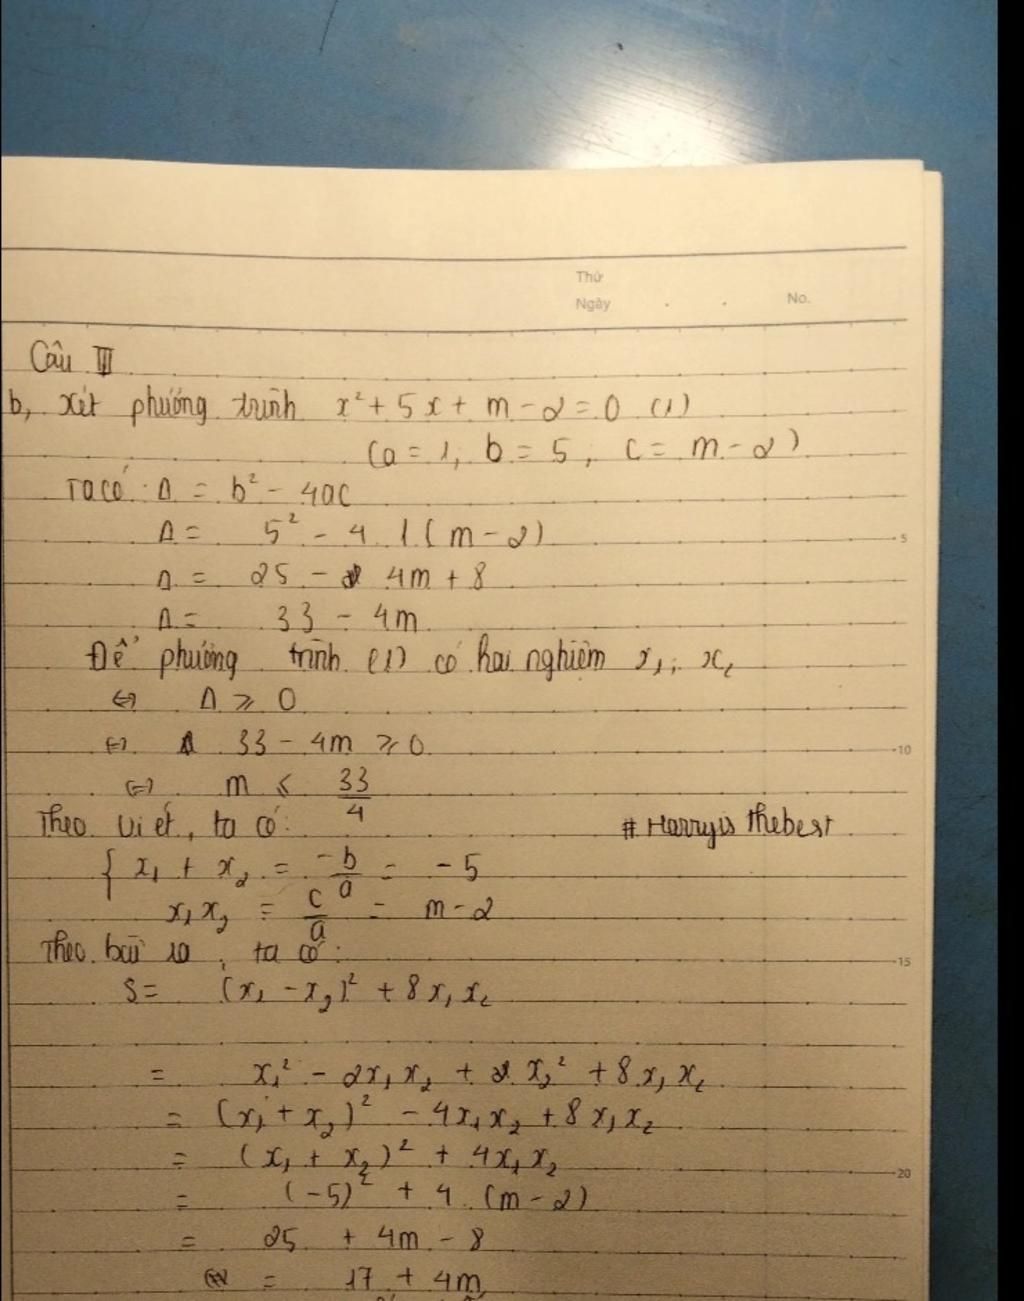 Thứ
Ngày . . No.
Câu III
b, xét phương trình x² + 5x + m - 2 = 0 (1)
(a = 1; b = 5; c = m - 2)
Ta có: Δ = b² - 4ac
Δ = 5² - 4.1(m - 2)
5
Δ = 25 - 4m + 8
Δ = 33 - 4m
Để phương trình (1) có hai nghiệm x₁; x₂
⇔ Δ ≥ 0
⇔ 33 - 4m ≥ 0
10
⇔ m ≤ 33/4
Theo Vi ét, ta có: # Harry is the best
{ x₁ + x₂ = -b/a = -5
x₁x₂ = c/a = m - 2
Theo bài ra, ta có:
15
S = (x₁ - x₂)² + 8x₁x₂
= x₁² - 2x₁x₂ + x₂² + 8x₁x₂
= (x₁ + x₂)² - 4x₁x₂ + 8x₁x₂
= (x₁ + x₂)² + 4x₁x₂
20
= (-5)² + 4.(m - 2)
= 25 + 4m - 8
= 17 + 4m